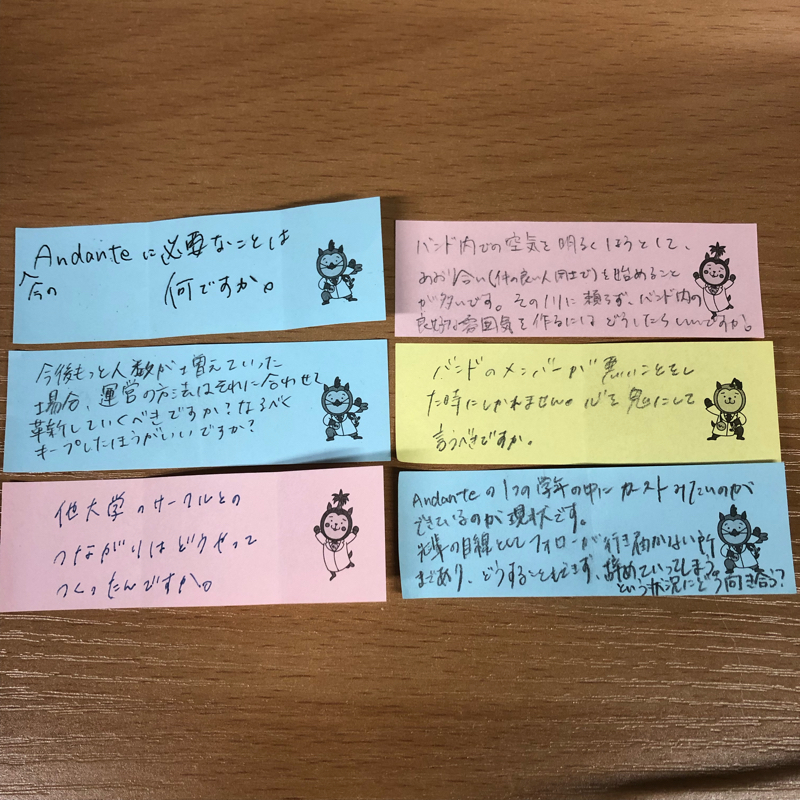 Andanteに必要なことは
今の 何ですか。
今後もっと人数が増えていった
場合、運営の方法はそれに合わせて
革新していくべきですか?なるべく
キープしたほうがいいですか?
他大学のサークルとの
つながりはどうやって
つくったんですか。
バンド内での空気を明るくしようとして、
あおり合い(仲の良い人同士で)を始めること
が多いです。そのノリに頼らず、バンド内の
良好な雰囲気を作るにはどうしたらいいですか?
バンドのメンバーが悪いことをし
た時にしかれません。心を鬼にして
言うべきですか。
Andanteの1つの学年の中にカーストみたいのが
できているのが現状です。
の目線としてフォローが行き届かない所
まであり、どうすることもできず、辞めていってしまう
という状況にどう向き合う?